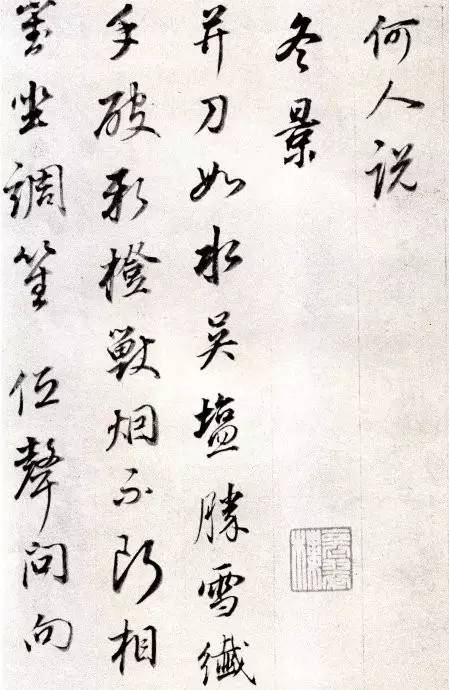 何人説
冬景
并刀如水吴塩勝雪纖
手破新橙獸烟不断相
對坐調笙低聲問向